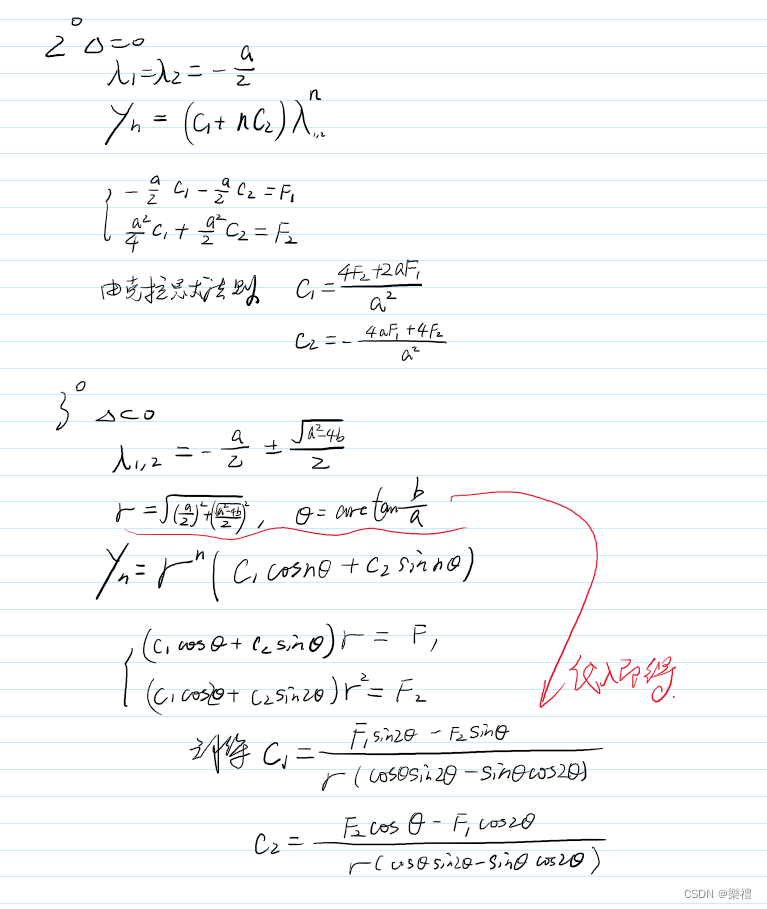 2° Δ=0
λ₁=λ₂ = -a/2
yₙ = (C₁ + nC₂) λ₁,₂ⁿ
{ -a/2 C₁ - a/2 C₂ = F₁
a²/4 C₁ + a²/2 C₂ = F₂
由克拉默法则 C₁ = (4F₂+2aF₁)/a²
C₂ = - (4aF₁+4F₂)/a²
3° Δ<0
λ₁,₂ = -a/2 ± √(a²-4b)/2
r = √((a/2)²+(√(a²-4b)/2)²), θ = arctan b/a
yₙ = rⁿ (C₁ cosnθ + C₂ sinnθ)
{ (C₁ cosθ + C₂ sinθ) r = F₁
(C₁ cos2θ + C₂ sin2θ) r² = F₂
代入即得.
解得 C₁ = (F₁ sin2θ - F₂ sinθ)/(r (cosθ sin2θ - sinθ cos2θ))
C₂ = (F₂ cosθ - F₁ cos2θ)/(r (cosθ sin2θ - sinθ cos2θ))
CSDN @樂禮